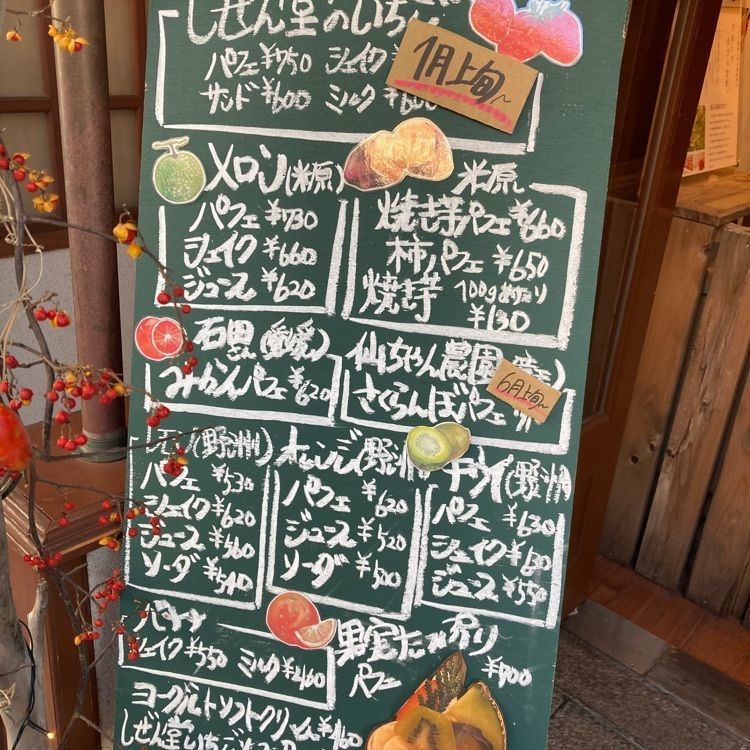 しぜん堂のいち
パフェ¥750 シェイク
サンド¥600 ミルク
1月上旬~
メロン(米原)
パフェ¥730
シェイク¥660
ジュース¥620
米原
焼き芋パフェ¥660
柿パフェ¥650
焼芋 100gあたり
¥130
(愛媛)
みかんパフェ¥620
仙ちゃん農園
さくらんぼパフェ
6月上旬~
レモン(野洲)
パフェ¥530
シェイク¥620
ジュース¥560
ソーダ¥540
オレンジ(野洲
パフェ¥620
ジュース¥520
ソーダ¥500
キウイ(野洲
パフェ¥630
シェイク
ジュース¥550
バナナ
シェイク¥550 ミルク¥460
パフェ
¥700
ヨーグルトソフトクリーム¥460
しぜん堂いちご